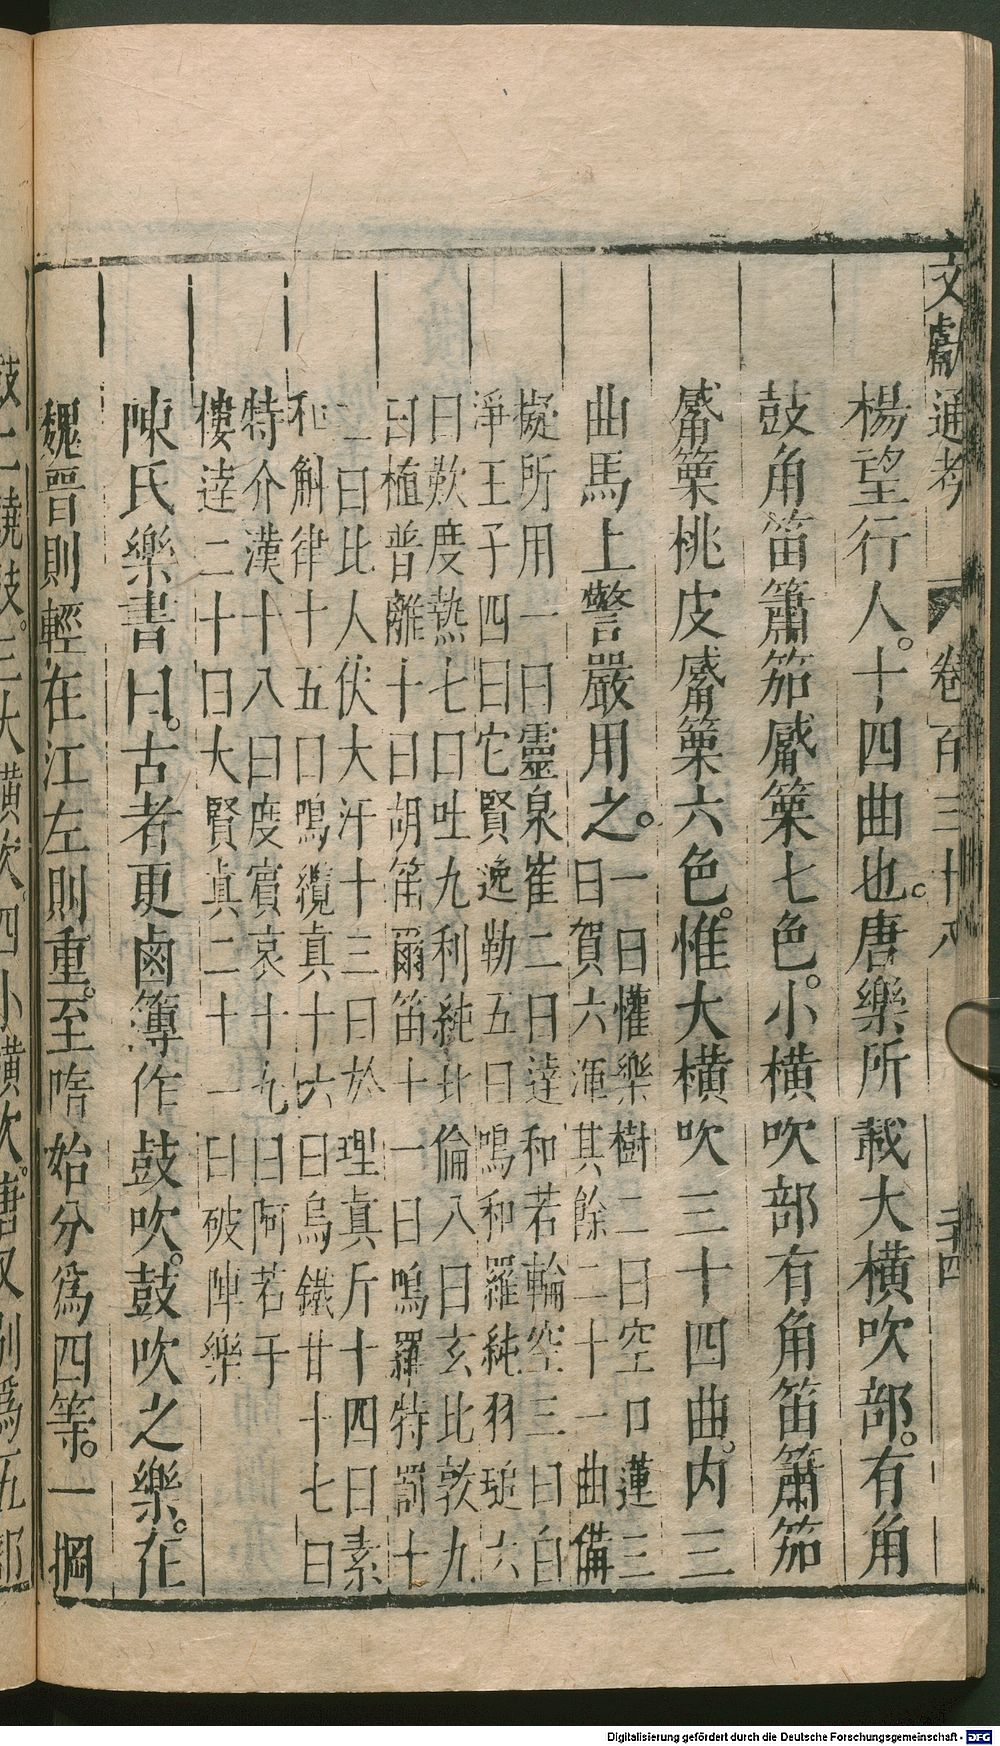 文獻通考 卷一百三十八 二十四
楊望行人十四曲也唐樂所載大橫吹部有角
鼓角笛簫笳觱篥七色小橫吹部有角笛簫笳
觱篥桃皮觱篥六色惟大橫吹三十四曲内三
曲馬上警嚴用之
一曰懽樂樹二曰空口蓮三
曰賀六渾其餘二十一曲備
擬所用一曰靈泉崔二曰達和若輪空三曰白
淨王子四曰它賢逸勒五曰鳴和羅純羽𤧚六
曰歎度熱七曰吐九利純比倫八曰玄比敦九
曰植普離十曰胡笛爾笛十一曰鳴羅特罰十
二曰比人伏大汗十三曰於理眞斤十四曰素
和斛律十五曰鳴纜眞十六曰烏鐵甘十七曰
特介漢十八曰度賓哀十九曰阿若于
樓達二十曰大賢眞二十一曰破陣樂
陳氏樂書曰古者更鹵簿作鼓吹鼓吹之樂在
魏晉則輕在江左則重至隋始分爲四等一掆
鼓二鐃鼓三大橫吹四小橫吹唐又別爲五部
Digitalisierung gefördert durch die Deutsche Forschungsgemeinschaft - DFG